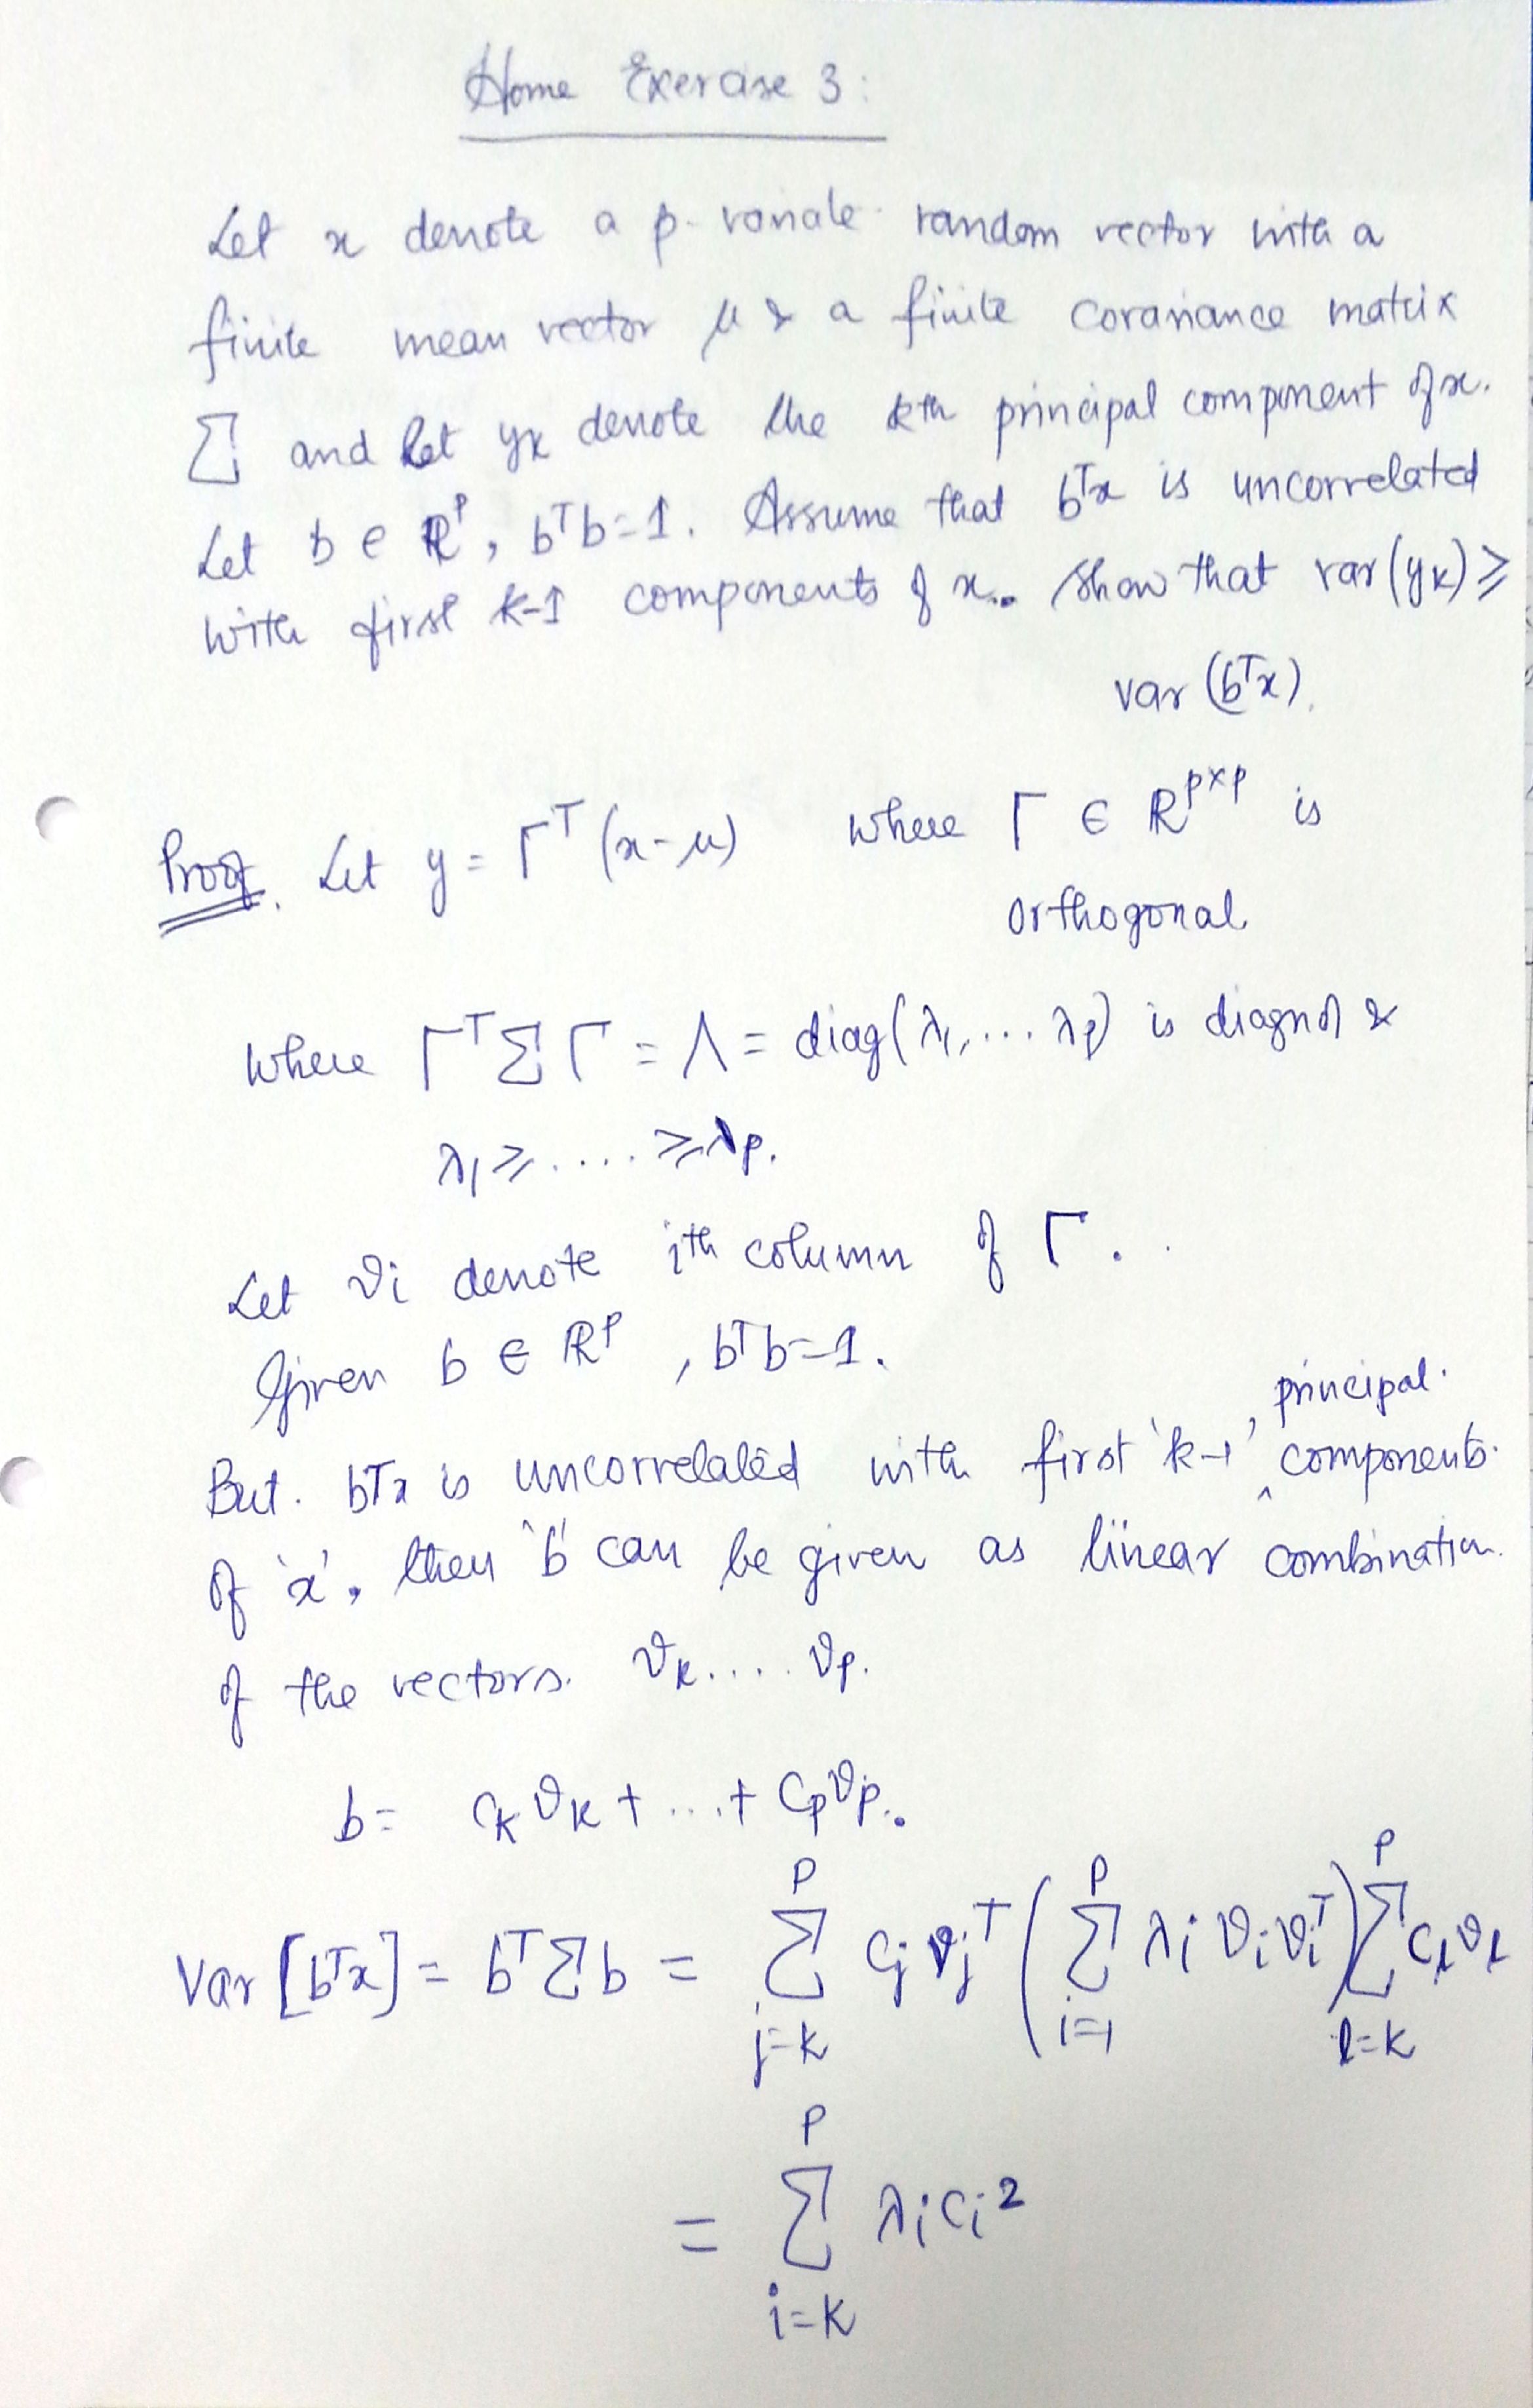 Home Exercise 3:
Let x denote a p-variate random vector with a
finite mean vector μ & a finite covariance matrix
Σ and let yk denote the kth principal component of x.
Let b ∈ ℝᵖ, bᵀb=1. Assume that bᵀx is uncorrelated
with first k-1 components of x. Show that var(yk) ≥
var(bᵀx).
Proof. Let y = Γᵀ(x-μ) where Γ ∈ ℝᵖˣᵖ is
orthogonal
where ΓᵀΣΓ = Λ = diag(λ1, ... λp) is diagnol &
λ1 ≥ .... ≥ λp.
Let ϑi denote ith column of Γ.
Given b ∈ ℝᵖ, bᵀb=1.
principal.
But. bᵀx is uncorrelated with first 'k-1' ^ components.
of 'x', then 'b' can be given as linear combination.
of the vectors. ϑk .... ϑp.
b = ck ϑk + ... + cp ϑp.
Var [bᵀx] = bᵀΣb = Σ_{j=k}^{p} cj ϑjᵀ ( Σ_{i=1}^{p} λi ϑi ϑiᵀ ) Σ_{l=k}^{p} cl ϑl
= Σ_{i=k}^{p} λi ci²